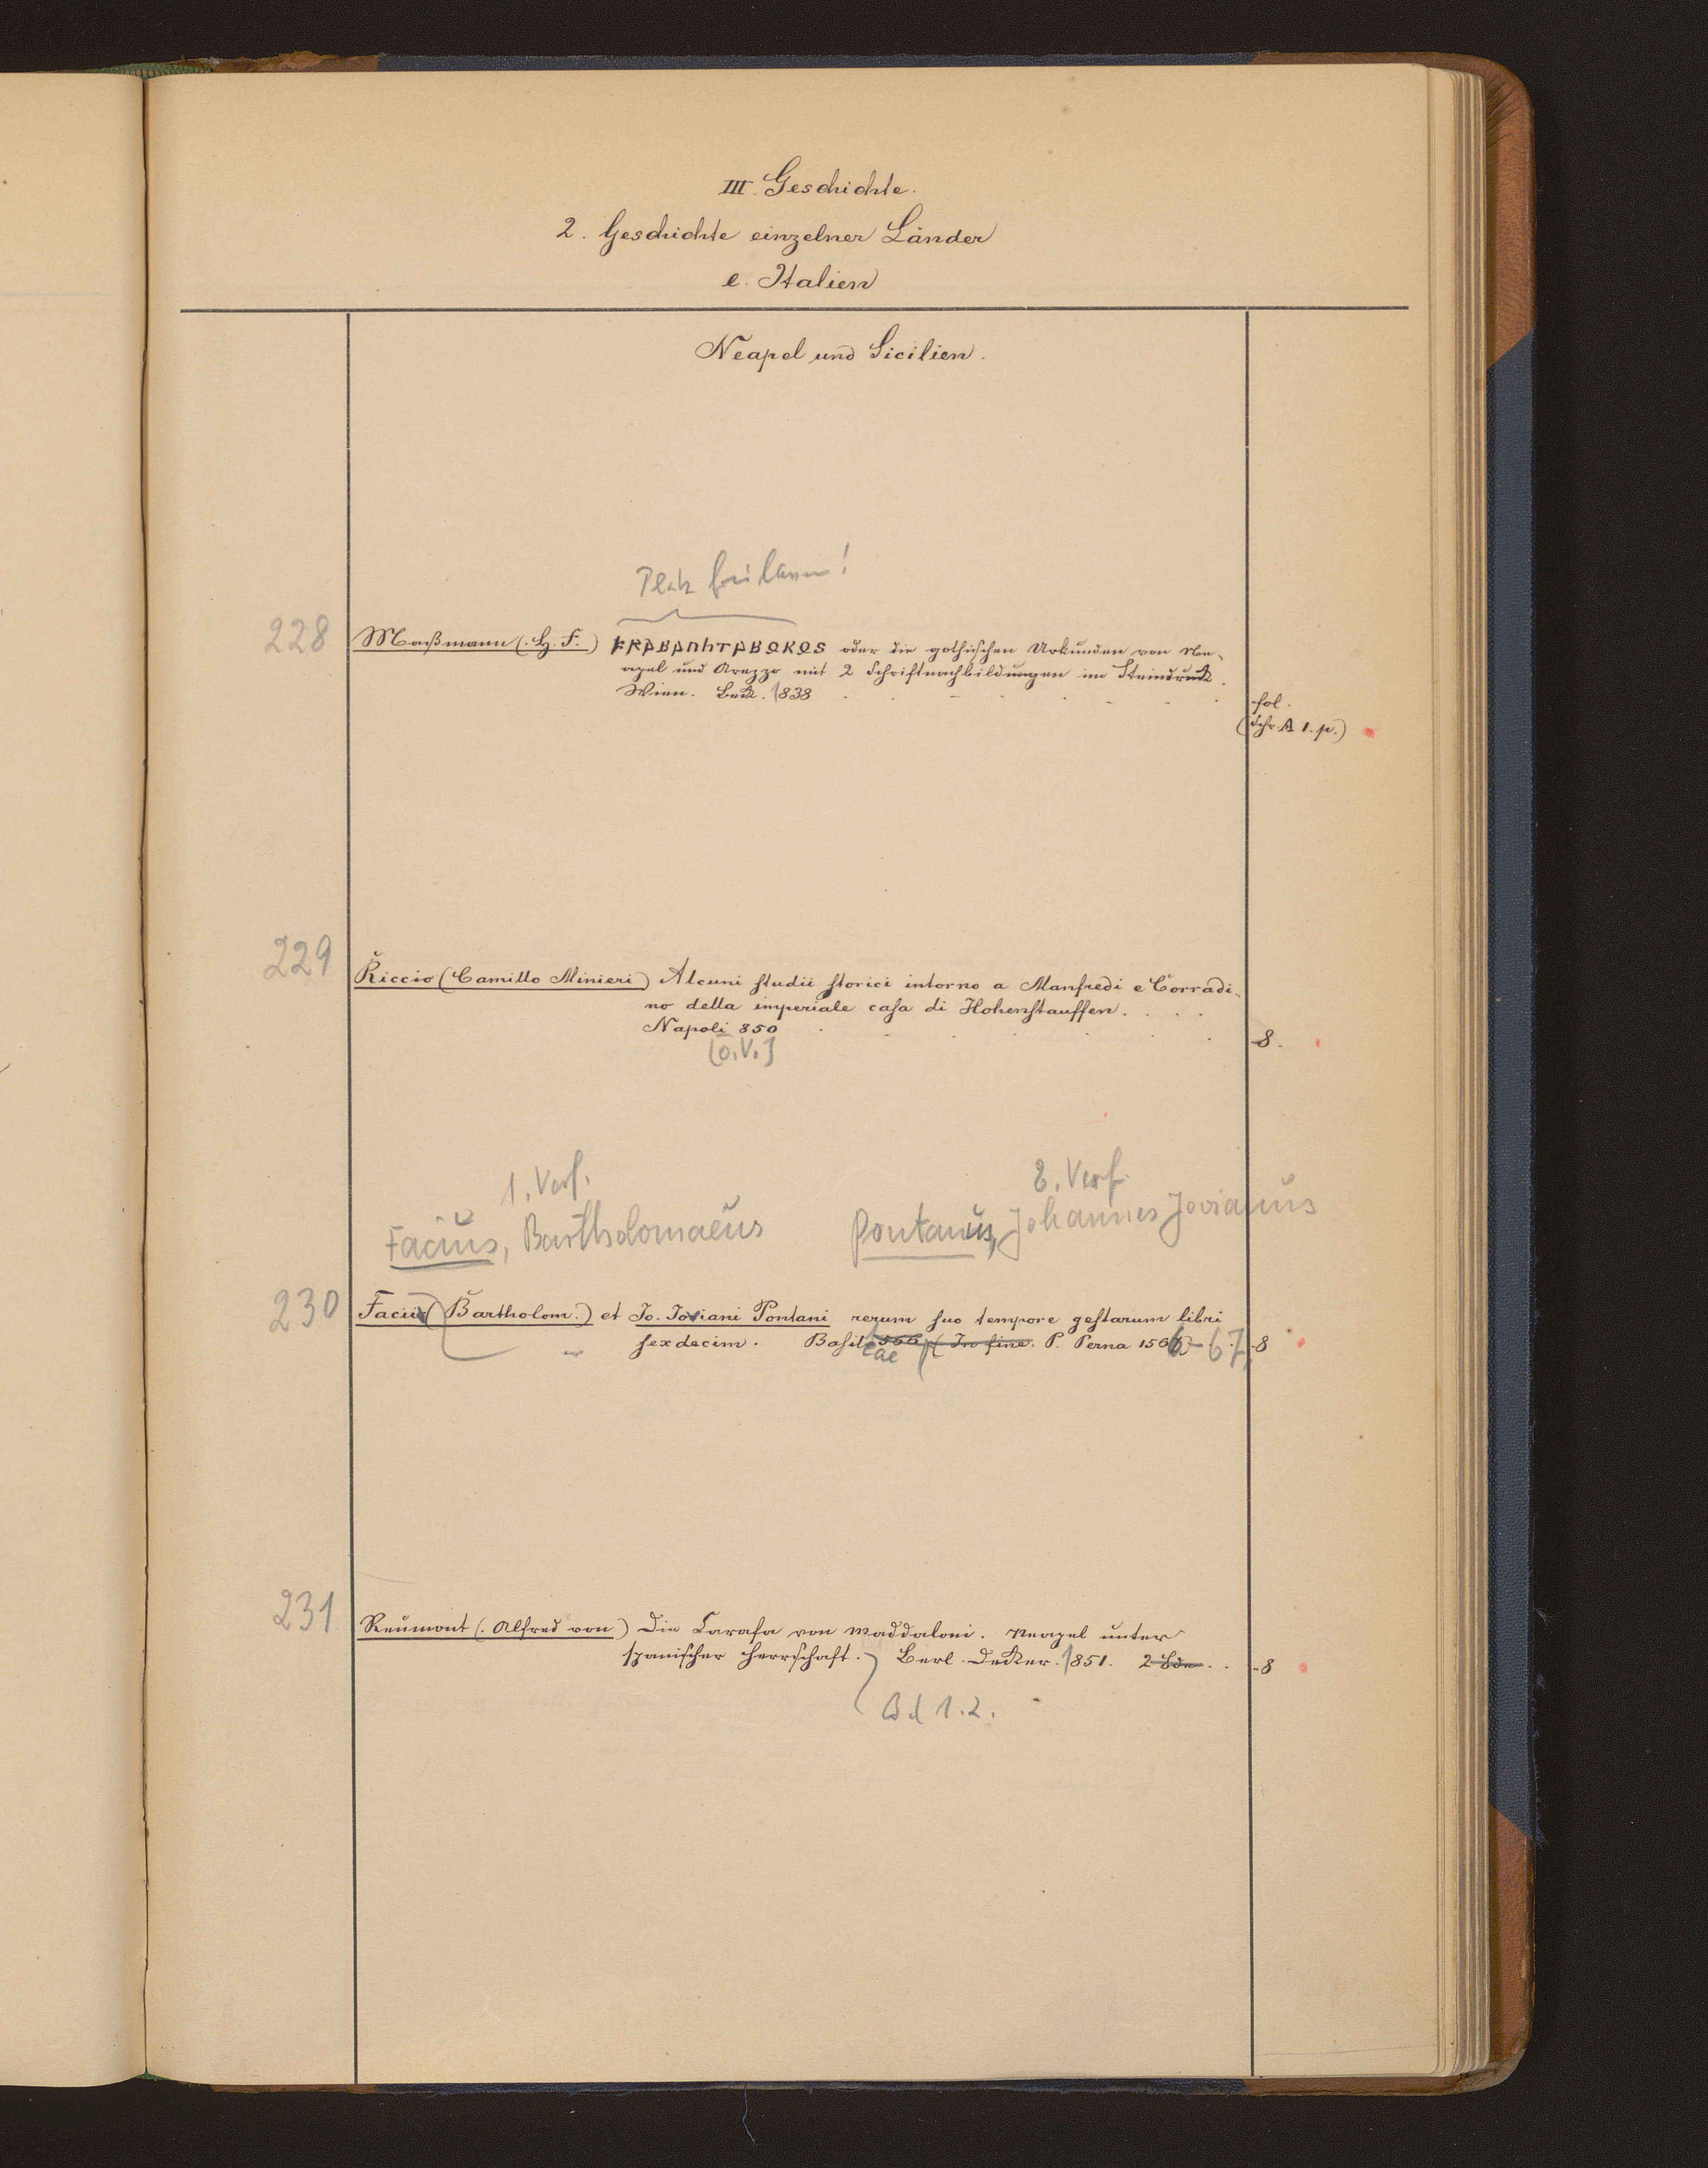 III. Geschichte.
2. Geschichte einzelner Länder
e. Italien
Neapel und Sicilien.
Platz freilassen!
228 Maßmann (H. F.) oder die gothischen Urkunden von Ne-
apel und Arezzo mit 2 Schriftnachbildungen im Steindruck.
Wien. Beck. 1838
fol.
(Schr. A 1. p.)
229 Riccio (Camillo Minieri) Alcuni studii storici intorno a Manfredi e Corradi-
no della imperiale casa di Hohenstauffen. . . .
Napoli 850 8.
[o. V.]
1. Verf. 2. Verf.
Facius, Bartholomaeus Pontanus, Johannes Jovianus
230 Facii (Bartholom.) et Jo. Joviani Pontani rerum suo tempore gestarum libri
sexdecim. Basileae 566 (In fine. P. Perna 1566-67. 8
231 Reumont (Alfred von) Die Carafa von Maddaloni. Neapel unter
spanischer Herrschaft. Berl. Decker. 1851. 2 Bde. . 8
Bd 1.2.